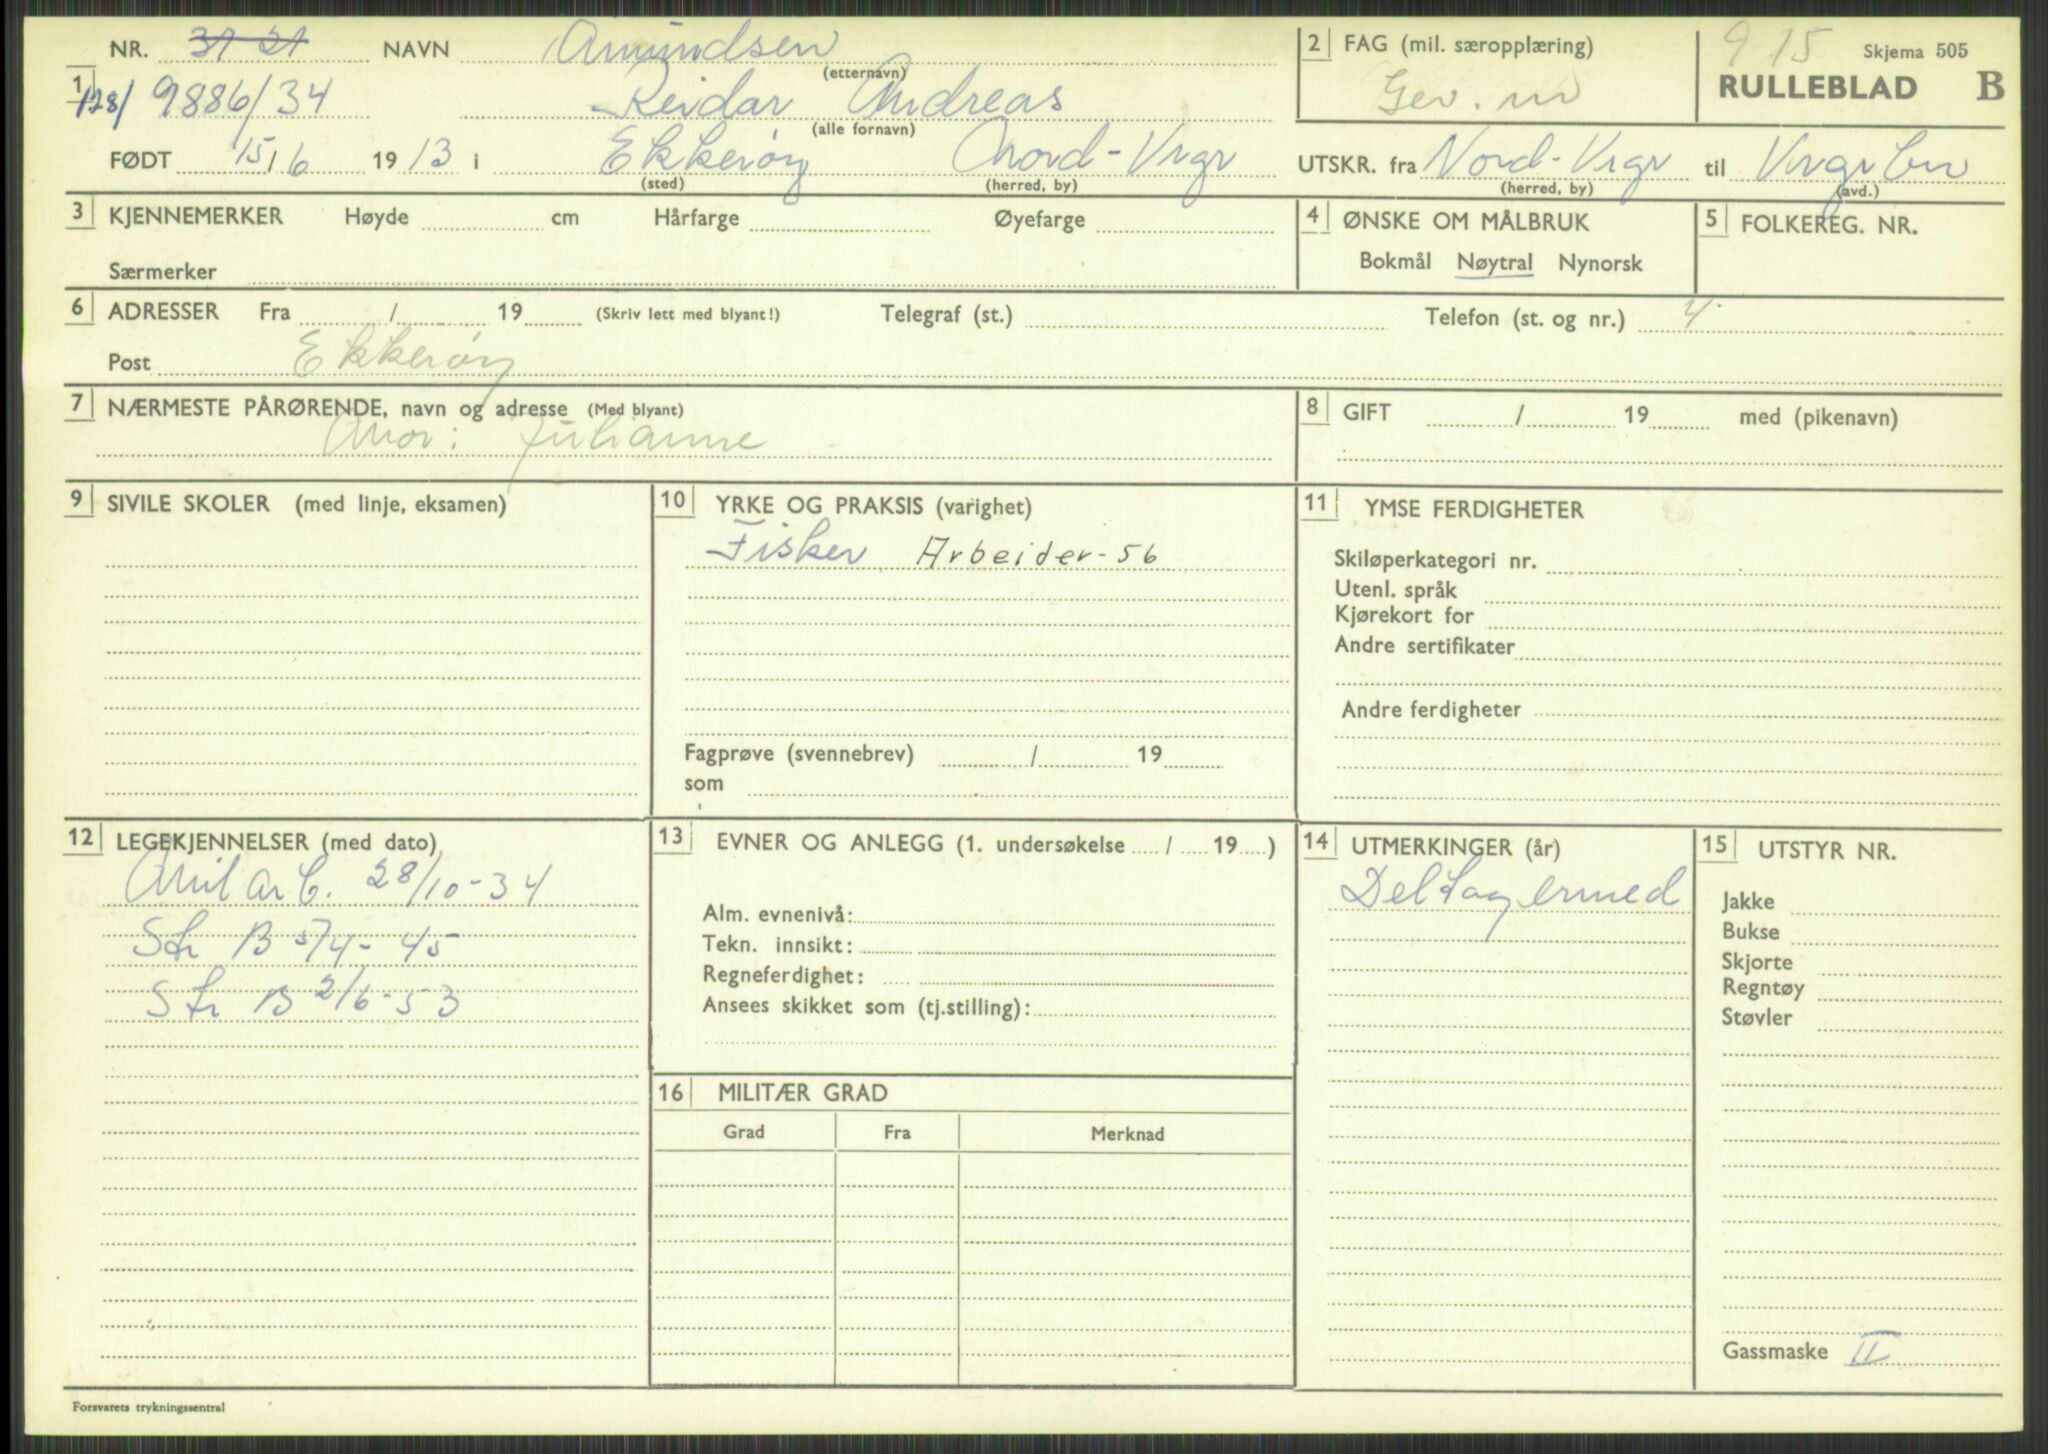 NR. 31 21 NAVN Amundsen (etternavn)
1 128/ 9886/34 Reidar Andreas (alle fornavn)
FØDT 15/6 1913 i Ekkerøy (sted) Nord-Vrgr (herred, by)
2 FAG (mil. særopplæring)
Gev.m
9 15 Skjema 505
RULLEBLAD B
UTSKR. fra Nord-Vrgr (herred, by) til Vrgr bn (avd.)
3 KJENNEMERKER Høyde cm Hårfarge Øyefarge
Særmerker
4 ØNSKE OM MÅLBRUK
Bokmål Nøytral Nynorsk
5 FOLKEREG. NR.
6 ADRESSER Fra / 19 (Skriv lett med blyant!) Telegraf (st.) Telefon (st. og nr.) 4
Post Ekkerøy
7 NÆRMESTE PÅRØRENDE, navn og adresse (Med blyant)
Mor: Julianne
8 GIFT / 19 med (pikenavn)
9 SIVILE SKOLER (med linje, eksamen)
10 YRKE OG PRAKSIS (varighet)
Fisker Arbeider-56
Fagprøve (svennebrev) / 19
som
11 YMSE FERDIGHETER
Skiløperkategori nr.
Utenl. språk
Kjørekort for
Andre sertifikater
Andre ferdigheter
12 LEGEKJENNELSER (med dato)
Mil arb. 28/10-34
Str B 5/4-45
Str B 2/6-53
13 EVNER OG ANLEGG (1. undersøkelse / 19 )
Alm. evnenivå:
Tekn. innsikt:
Regneferdighet:
Ansees skikket som (tj.stilling):
14 UTMERKINGER (år)
Deltagermed
15 UTSTYR NR.
Jakke
Bukse
Skjorte
Regntøy
Støvler
Gassmaske II
16 MILITÆR GRAD
Grad Fra Merknad
Forsvarets trykningssentral